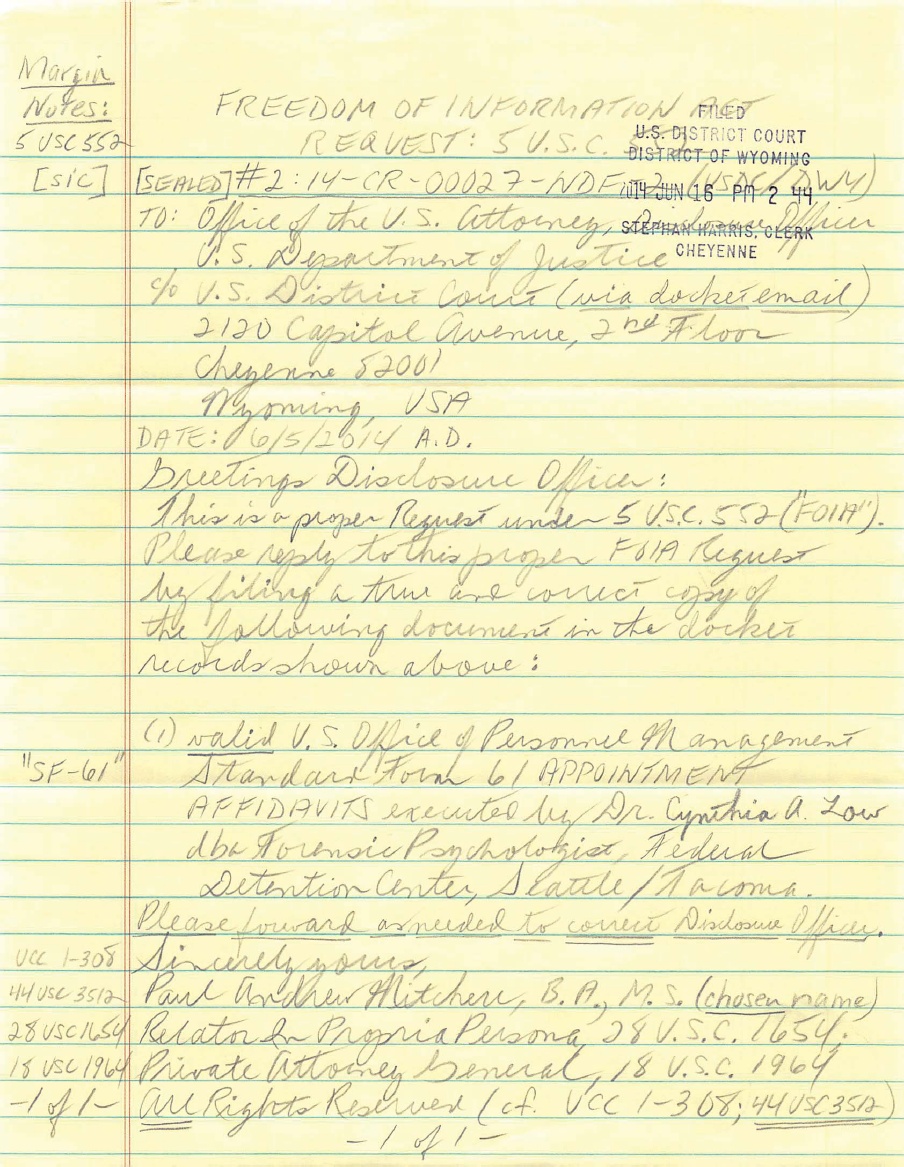 Margin
Notes:
5 USC 552
[sic]
FREEDOM OF INFORMATION ACT
REQUEST: 5 U.S.C.
FILED
U.S. DISTRICT COURT
DISTRICT OF WYOMING
2014 JUN 16 PM 2 44
STEPHAN HARRIS, CLERK
CHEYENNE
[SEALED] #2:14-CR-00027-NDF-2 (USDC/DWY)
TO: Office of the U.S. Attorney, Disclosure Officer
U.S. Department of Justice
c/o U.S. District Court (via docket email)
2120 Capitol Avenue, 2nd Floor
Cheyenne 82001
Wyoming, USA
DATE: 6/5/2014 A.D.
Greetings Disclosure Officer:
This is a proper Request under 5 U.S.C. 552 ("FOIA").
Please reply to this proper FOIA Request
by filing a true and correct copy of
the following document in the docket
records shown above:
(1) valid U.S. Office of Personnel Management
"SF-61" Standard Form 61 APPOINTMENT
AFFIDAVITS executed by Dr. Cynthia A. Low
dba Forensic Psychologist, Federal
Detention Center, Seattle/Tacoma.
Please forward as needed to correct Disclosure Officer.
UCC 1-308 Sincerely yours,
44 USC 3512 Paul Andrew Mitchell, B.A., M.S. (chosen name)
28 USC 1654 Relator In Propria Persona, 28 U.S.C. 1654;
18 USC 1964 Private Attorney General, 18 U.S.C. 1964
-1 of 1- All Rights Reserved (cf. UCC 1-308; 44 USC 3512)
- 1 of 1 -